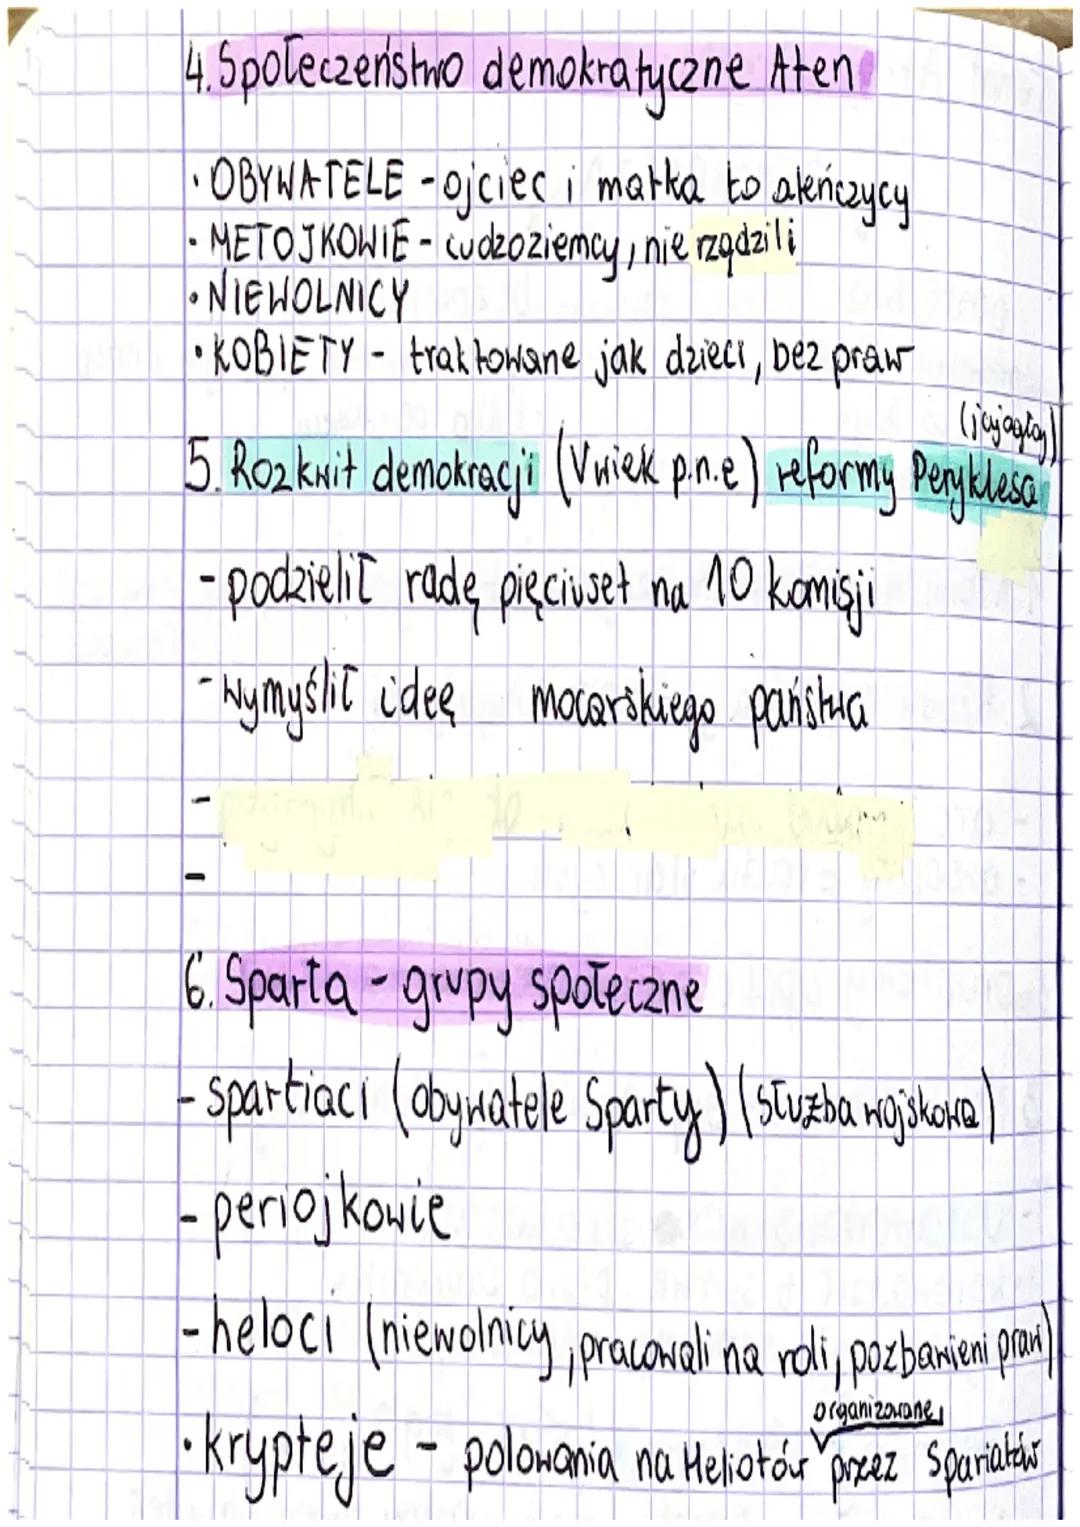 4. Społeczeństwo demokratyczne Aten
· OBYWATELE - ojciec i matka to ateńczycy
· METOJKOWIE - cudzoziemcy, nie rządzili
· NIEWOLNICY
· KOBIETY - traktowane jak dzieci, bez praw
(jajogłowy)
5. Rozkwit demokracji (V wiek p.n.e) reformy Peryklesa
- podzielił radę pięciuset na 10 komisji
- wymyślił ideę mocarskiego państwa
-
-
6. Sparta - grupy społeczne
- spartiaci (obywatele Sparty) (służba wojskowa)
- periojkowie
- heloci (niewolnicy, pracowali na roli, pozbawieni praw)
organizowane
· krypteje - polowania na Heliotów przez Spariatów